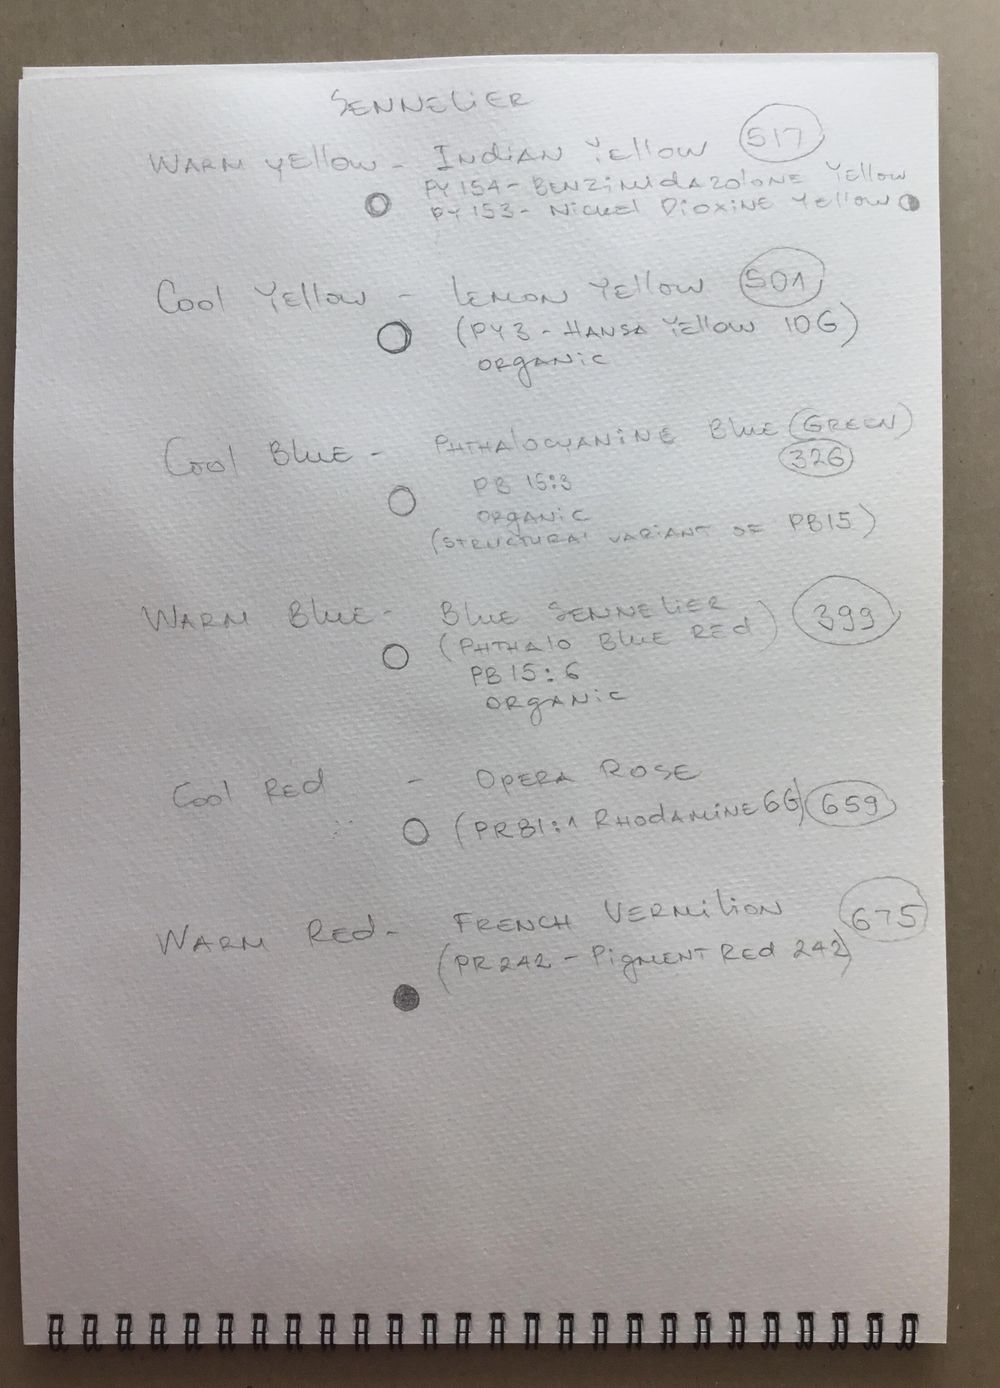 SENNELiER
WARM YEllow - INdiAN YEllow 517
PY154 - BENZiMidAZolONE YEllow
PY153 - Nickel DioxiNE YEllow
Cool YEllow - LEMON YEllow 501
(PY3 - HANSA YEllow 10G)
ORgANiC
Cool BluE - PHTHAloCYANiNE BluE (GREEN)
326
PB 15:3
ORgANiC
(STRUCTURAl VARiANT OF PB15)
WARM BluE - BluE SENNELiER 399
(PHTHAlo BluE REd)
PB 15:6
ORgANiC
Cool REd - OPERA ROSE
(PR81:1 RHodAMiNE 6G) 659
WARM REd - FRENCH VERMiliON 675
(PR242 - PigMENT REd 242)